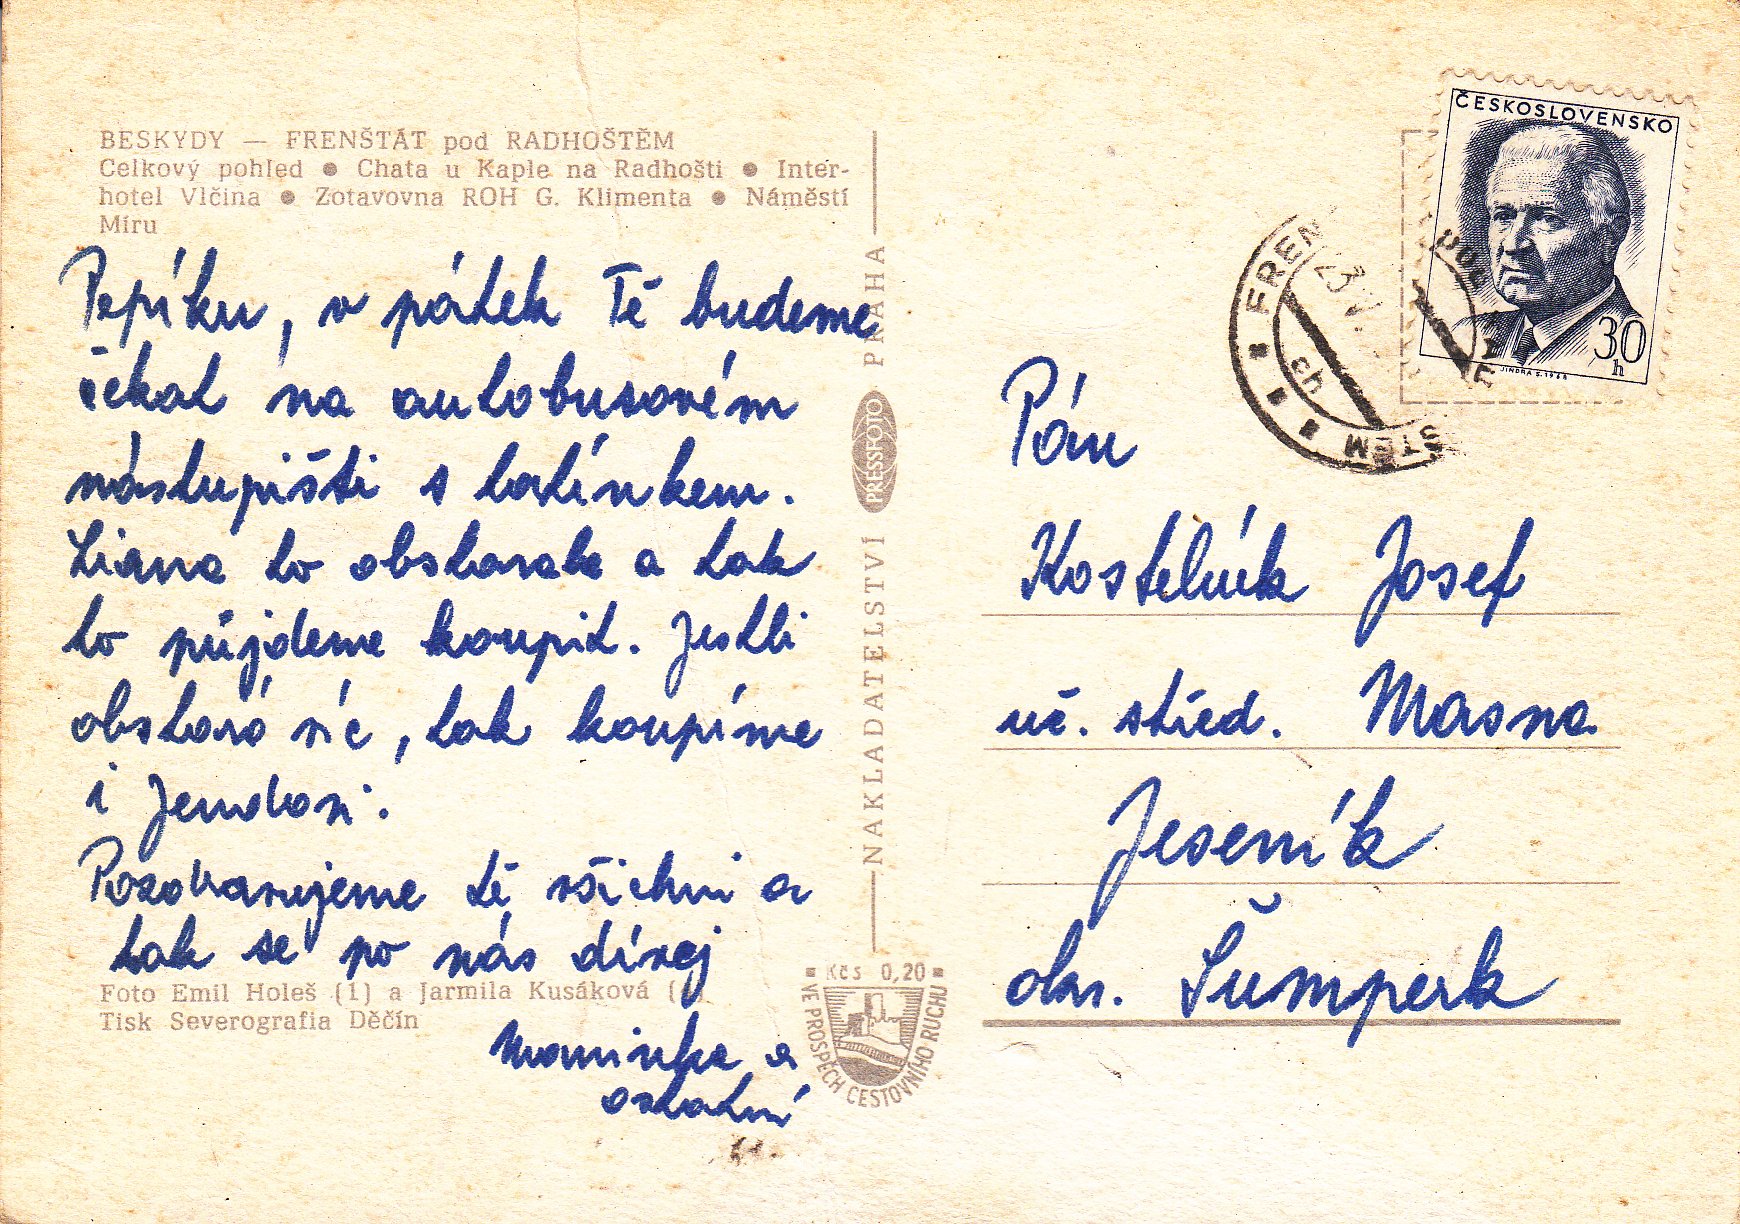 BESKYDY — FRENŠTÁT pod RADHOŠTĚM
Celkový pohled ● Chata u Kaple na Radhošti ● Inter-
hotel Vlčina ● Zotavovna ROH G. Klimenta ● Náměstí
Míru
Pepíku, v pátek Tě budeme
čekat na autobusovém
nástupišti s tatínkem.
Liana to obstarala a tak
to půjdeme koupit. Jestli
obstará víc, tak koupíme
i Jendovi.
Pozdravujeme tě všichni a
tak se po nás dívej
maminka a
ostatní
Foto Emil Holeš (1) a Jarmila Kusáková (
Tisk Severografia Děčín
NAKLADATELSTVÍ PRESSFOTO PRAHA
Kčs 0,20
VE PROSPĚCH CESTOVNÍHO RUCHU
ČESKOSLOVENSKO
30
h
JINDRA S. 1968
FREN
STEM
23.
ch
Pán
Kostelník Josef
uč. střed. Masna
Jeseník
okr. Šumperk